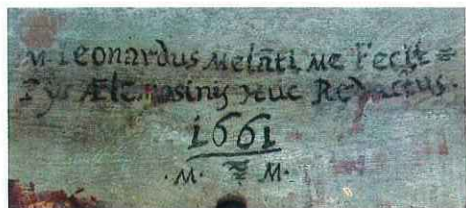 M. Leonardus Melāti Me Fecit =
Pijs Ælēmosinis Huc Redactus.
1661
.M. M.